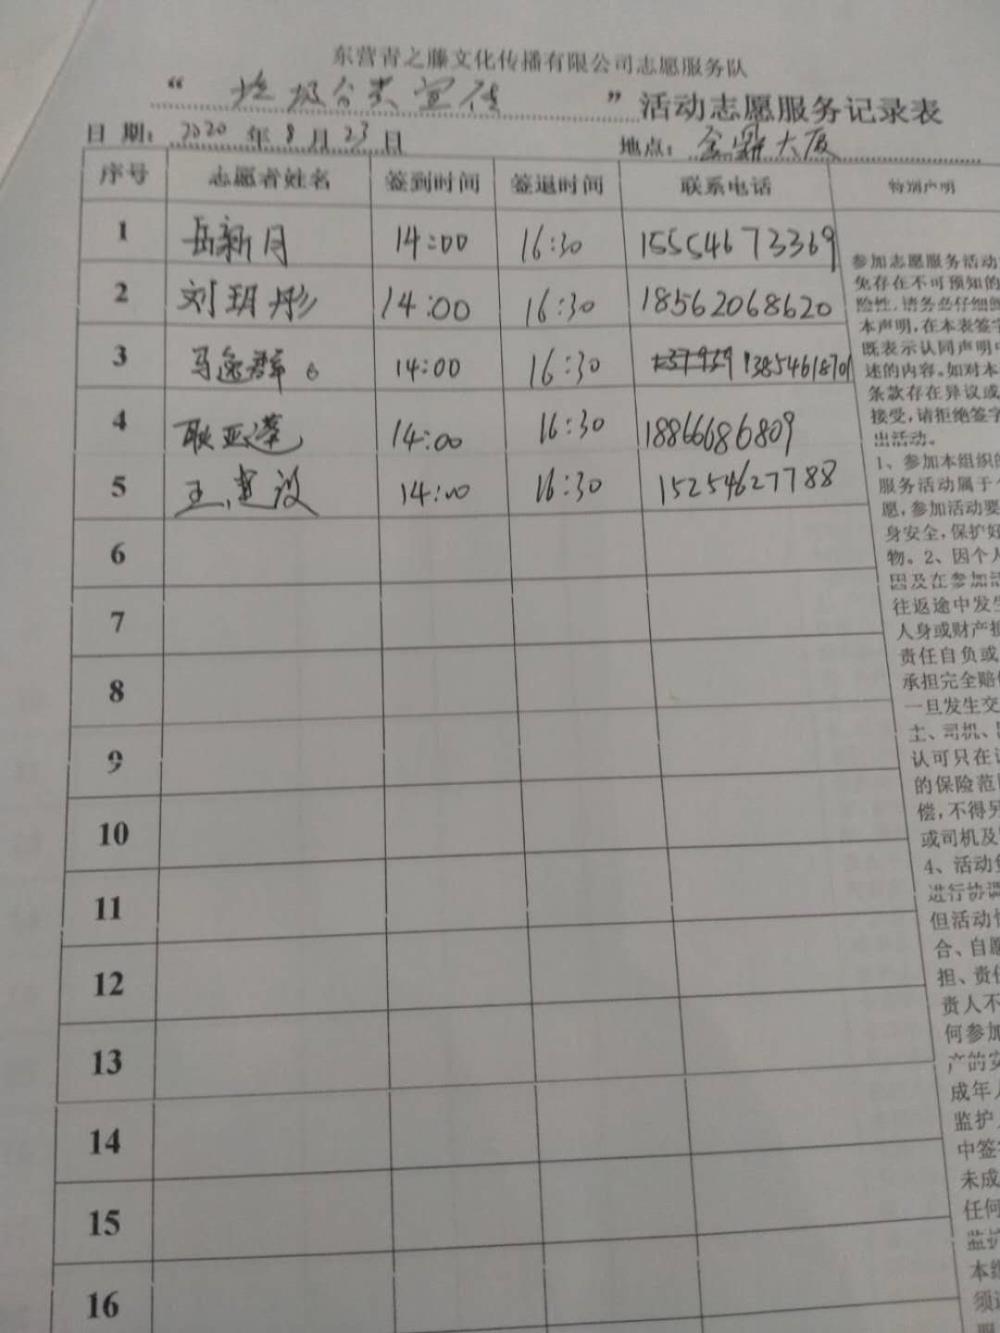 东营青之藤文化传播有限公司志愿服务队
“垃圾分类宣传”活动志愿服务记录表
日期：2020年8月23日 地点：金鼎大厦
序号 志愿者姓名 签到时间 签退时间 联系电话 特别声明
1 岳新月 14:00 16:30 15554673369
2 刘玥彤 14:00 16:30 18562068620
3 马逸群 14:00 16:30 13854618701
4 耿亚莲 14:00 16:30 18866686809
5 王建设 14:00 16:30 15254627788
6
7
8
9
10
11
12
13
14
15
16
参加志愿服务活动
免存在不可预知的
险性，请务必仔细的
本声明，在本表签字
既表示认同声明中
述的内容。如对本
条款存在异议或
接受，请拒绝签字
出活动。
1、参加本组织的
服务活动属于
愿，参加活动要
身安全，保护好
物。2、因个人
因及在参加活
往返途中发生
人身或财产损
责任自负或
承担完全赔
一旦发生交
主、司机、
认可只在
的保险范
偿，不得另
或司机及
4、活动
进行协调
但活动
合、自愿
担、责任
责人不
何参加
产的安
成年人
监护
中签
未成
任何
监护
本组
须